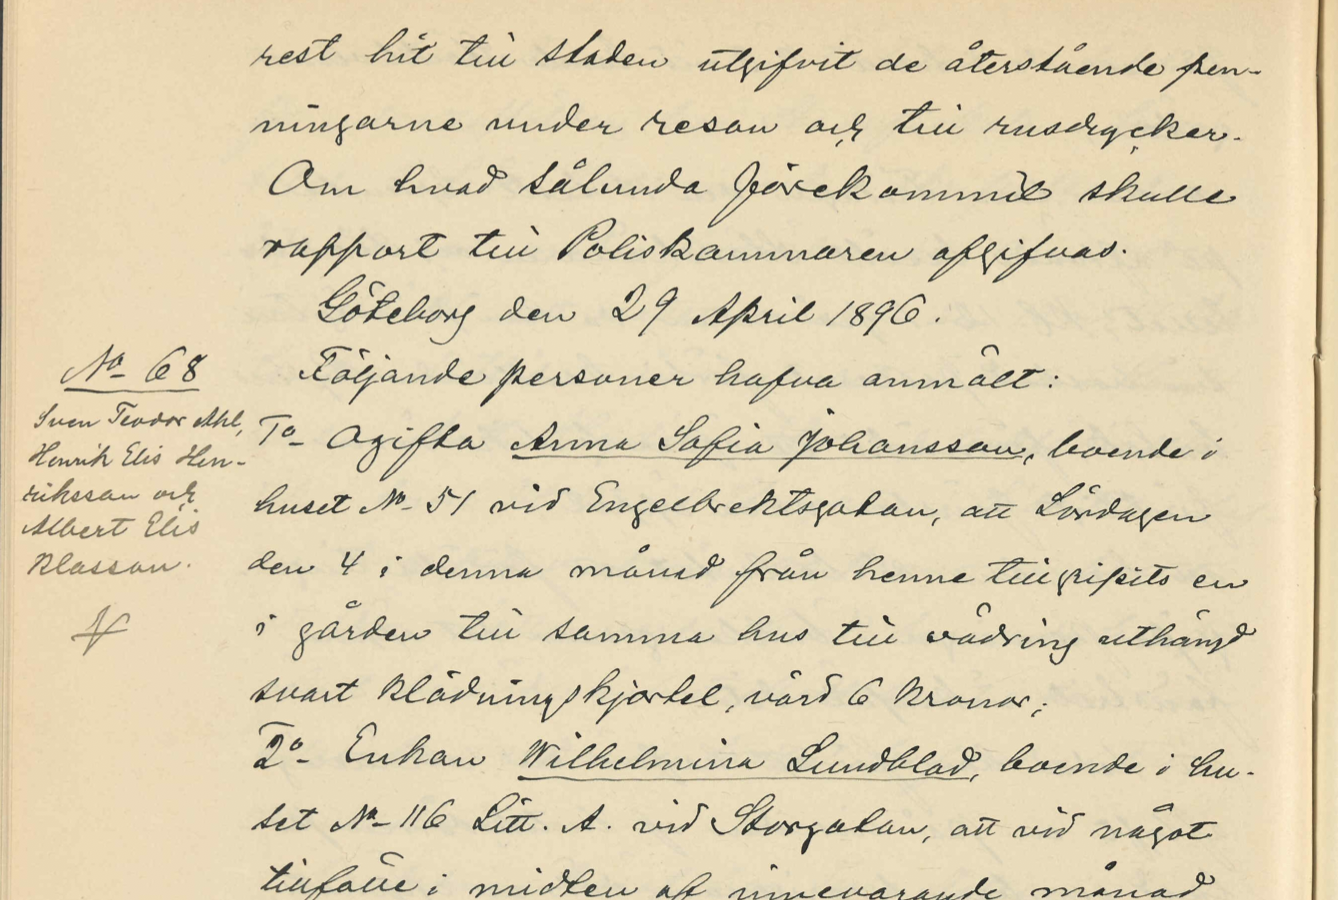 rest hit till staden utgifvit de återstående pen-
ningarne under resan och till rusdrycker.
Om hvad sålunda förekommit skulle
rapport till Poliskammaren afgifvas.
Göteborg den 29 April 1896.
No 68
Sven Teodor Ahl,
Henrik Elis Hen-
riksson och
Albert Elis
Klasson.
Följande personer hafva anmält:
1o Ogifta Anna Sofia Johansson, boende i
huset No 51 vid Engelbrektsgatan, att Lördagen
den 4 i denna månad från henne tillgripits en
i gården till samma hus till vädring uthängd
svart klädningskjortel, värd 6 kronor;
2o Enkan Wilhelmina Lundblad, boende i hu-
set No 116 Litt. A. vid Storgatan, att vid något
tillfälle i midten af innevarande månad